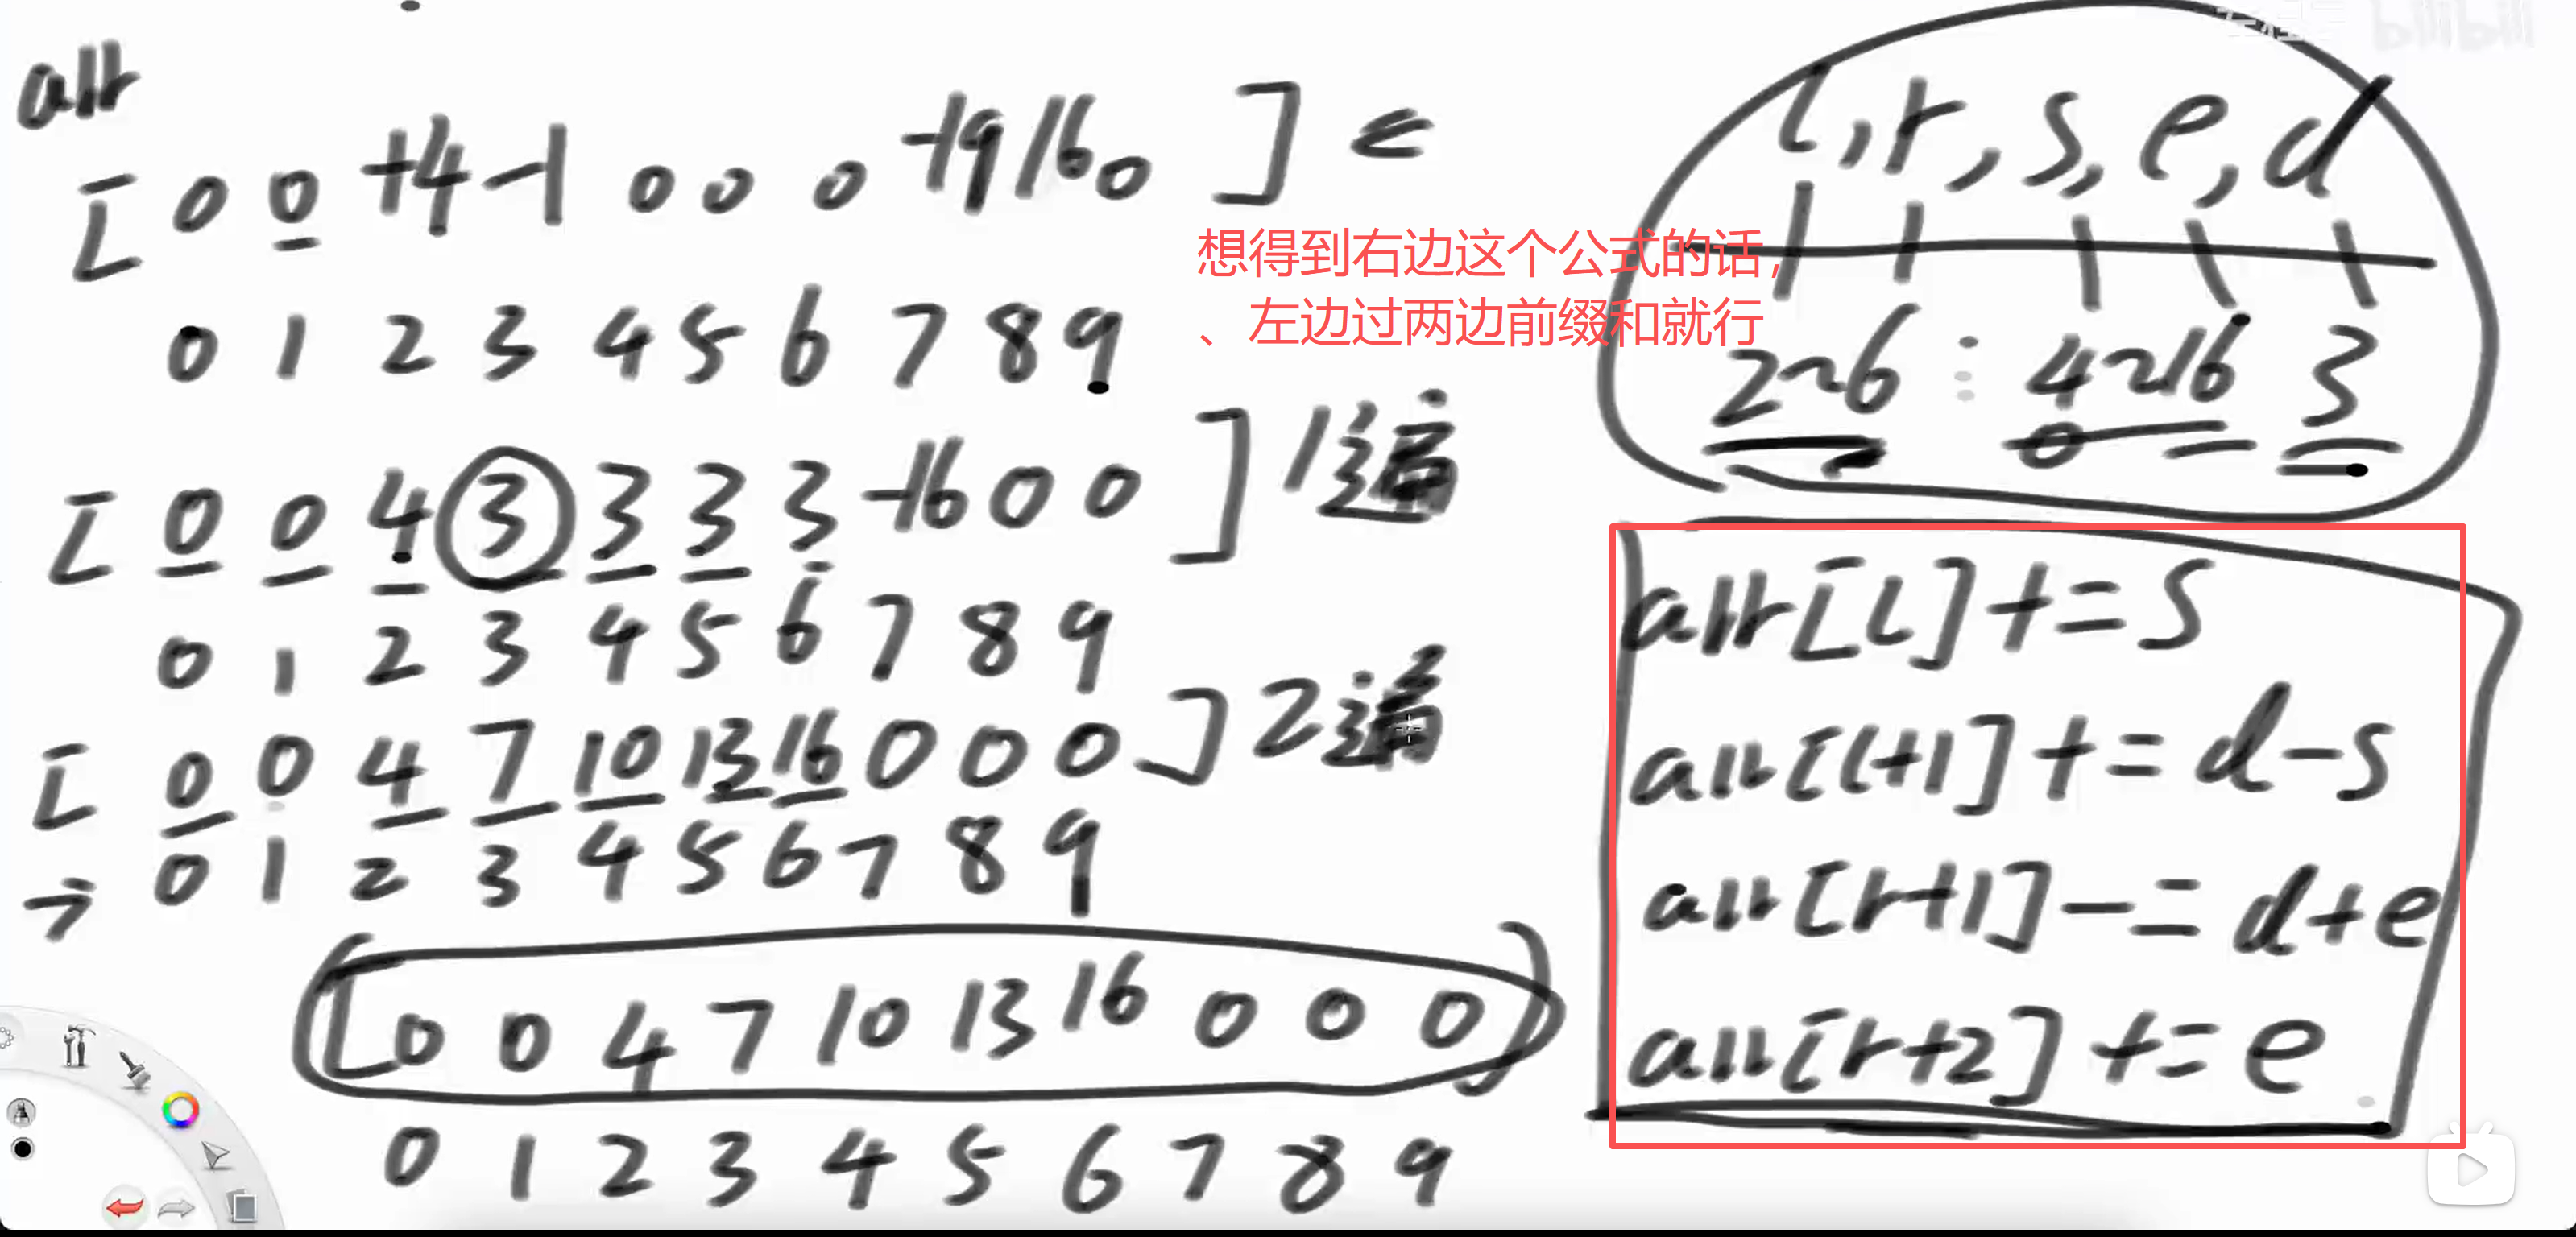 arr
[ 0 0 +4 -1 0 0 0 -19 16 0 ] ⇐
0 1 2 3 4 5 6 7 8 9
[ 0 0 4 3 3 3 3 -16 0 0 ] 1遍
0 1 2 3 4 5 6 7 8 9
[ 0 0 4 7 10 13 16 0 0 0 ] 2遍
→ 0 1 2 3 4 5 6 7 8 9
[ 0 0 4 7 10 13 16 0 0 0 ]
0 1 2 3 4 5 6 7 8 9
想得到右边这个公式的话，
、左边过两边前缀和就行
l, r, s, e, d
2~6 : 4~16 3
arr[l] += s
arr[l+1] += d-s
arr[r+1] -= d+e
arr[r+2] += e
bilibili